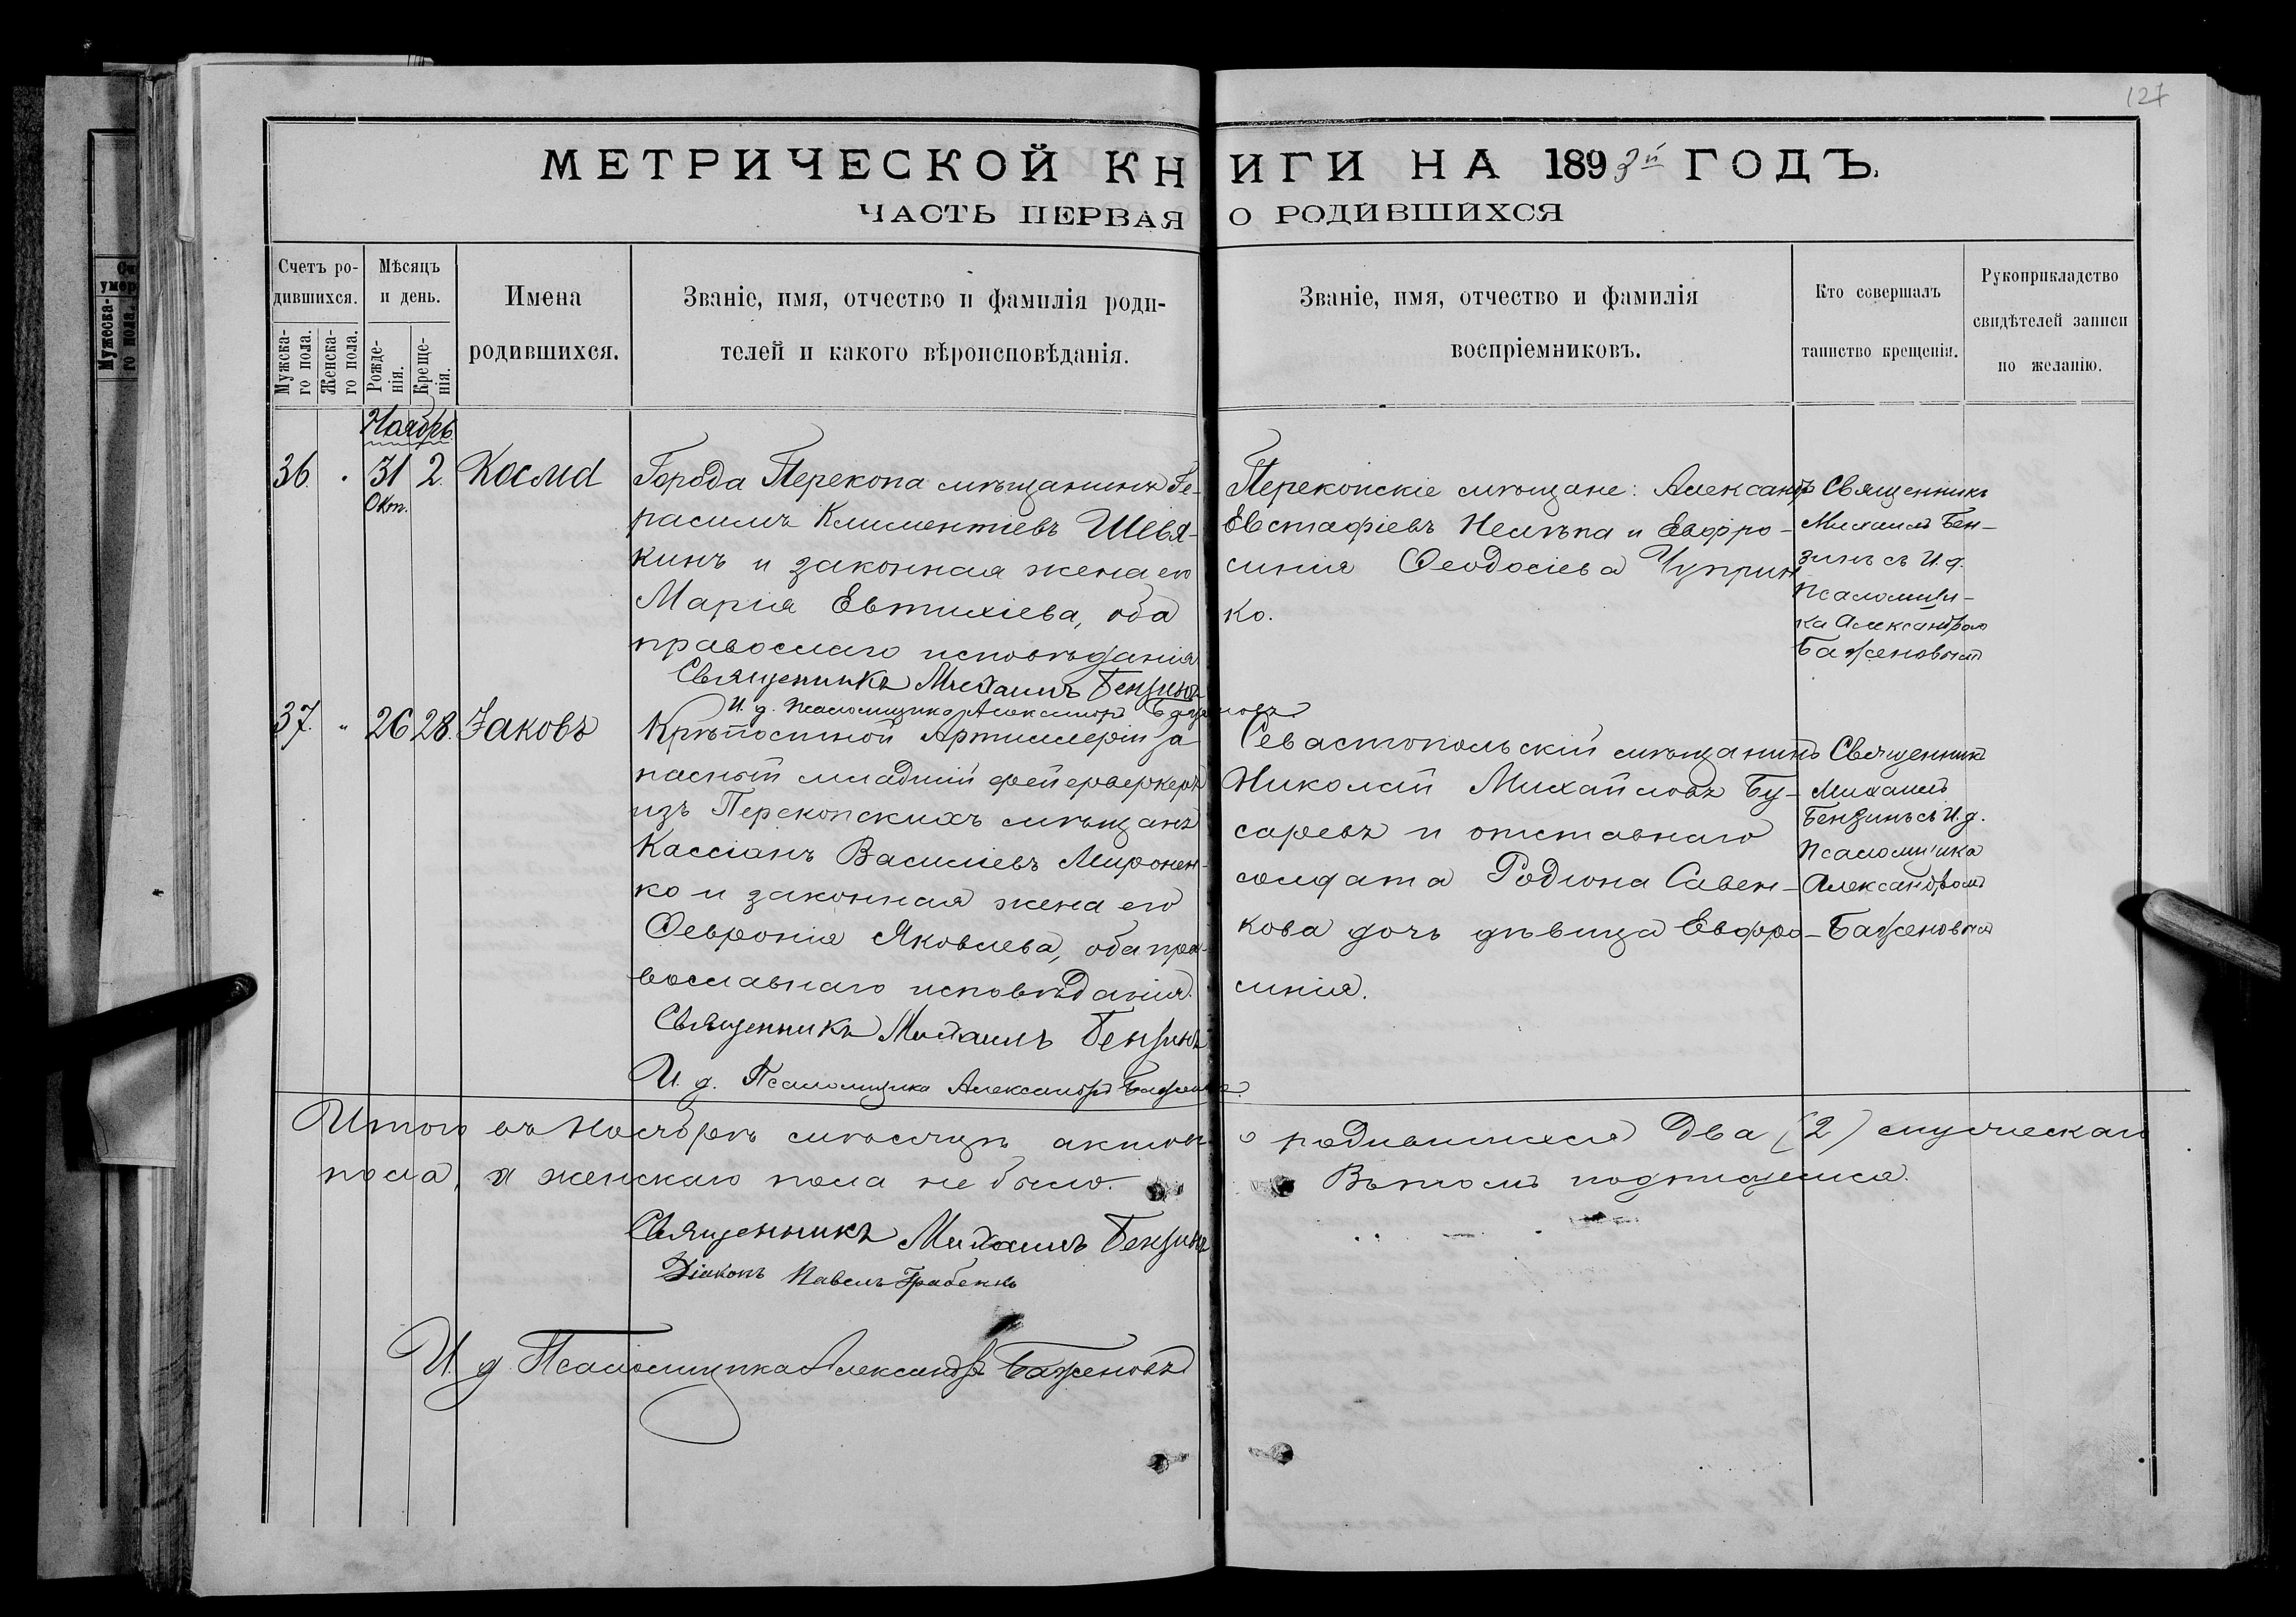 127
МЕТРИЧЕСКОЙ КНИГИ НА 1893й ГОДЪ.
ЧАСТЬ ПЕРВАЯ О РОДИВШИХСЯ
Счетъ ро-
дившихся.
Мужска-
го пола.
Женска-
го пола.
Мѣсяцъ
и день.
Рожде-
нія.
Креще-
нія.
Имена
родившихся.
Званіе, имя, отчество и фамилія роди-
телей и какого вѣроисповѣданія.
Званіе, имя, отчество и фамилія
воспріемниковъ.
Кто совершалъ
таинство крещенія.
Рукоприкладство
свидѣтелей записи
по желанію.
Ноябрь
36. 31 2. Косма
Окт.
Города Перекопа мѣщанинъ Ге-
расимъ Климентіевъ Шевя-
кинъ и законная жена его
Марія Евтихіева, оба
правослаго исповѣданія
Священникъ Михаилъ Бензинъ
И. д. Псаломщика Александръ Баженовъ.
Перекопскіе мѣщане: Александръ
Евстафіевъ Нелѣпа и Евфро-
синія Ѳеодосіева Чуприн
ко.
Священникъ
Михаилъ Бен-
зинъ съ И. д.
Псаломщи-
ка Александромъ
Баженовымъ
37. " 26 28. Іаковъ
Крѣпостной Артиллеріи за
пасный младшій фейерверкеръ
изъ Перекопскихъ мѣщанъ
Кассіанъ Василіевъ Миронен-
ко и законная жена его
Ѳевронія Яковлева, оба пра-
вославнаго исповѣданія.
Священникъ Михаилъ Бензинъ
И. д. Псаломщика Александръ Баженовъ.
Севастопольскій мѣщанинъ
Николай Михайловъ Бу-
саревъ и отставнаго
солдата Родіона Савен-
кова дочь дѣвица Евфро-
синія.
Священникъ
Михаилъ
Бензинъ съ И. д.
Псаломщика
Александромъ
Баженовымъ
Итого въ Ноябрѣ мѣсяцѣ актовъ о родившихся два (2) мужескаго
пола, а женскаго пола не было. Въ томъ подпишемся.
Священникъ Михаилъ Бензинъ
Діаконъ Павелъ Грабенко
И. д. Псаломщика Александръ Баженовъ